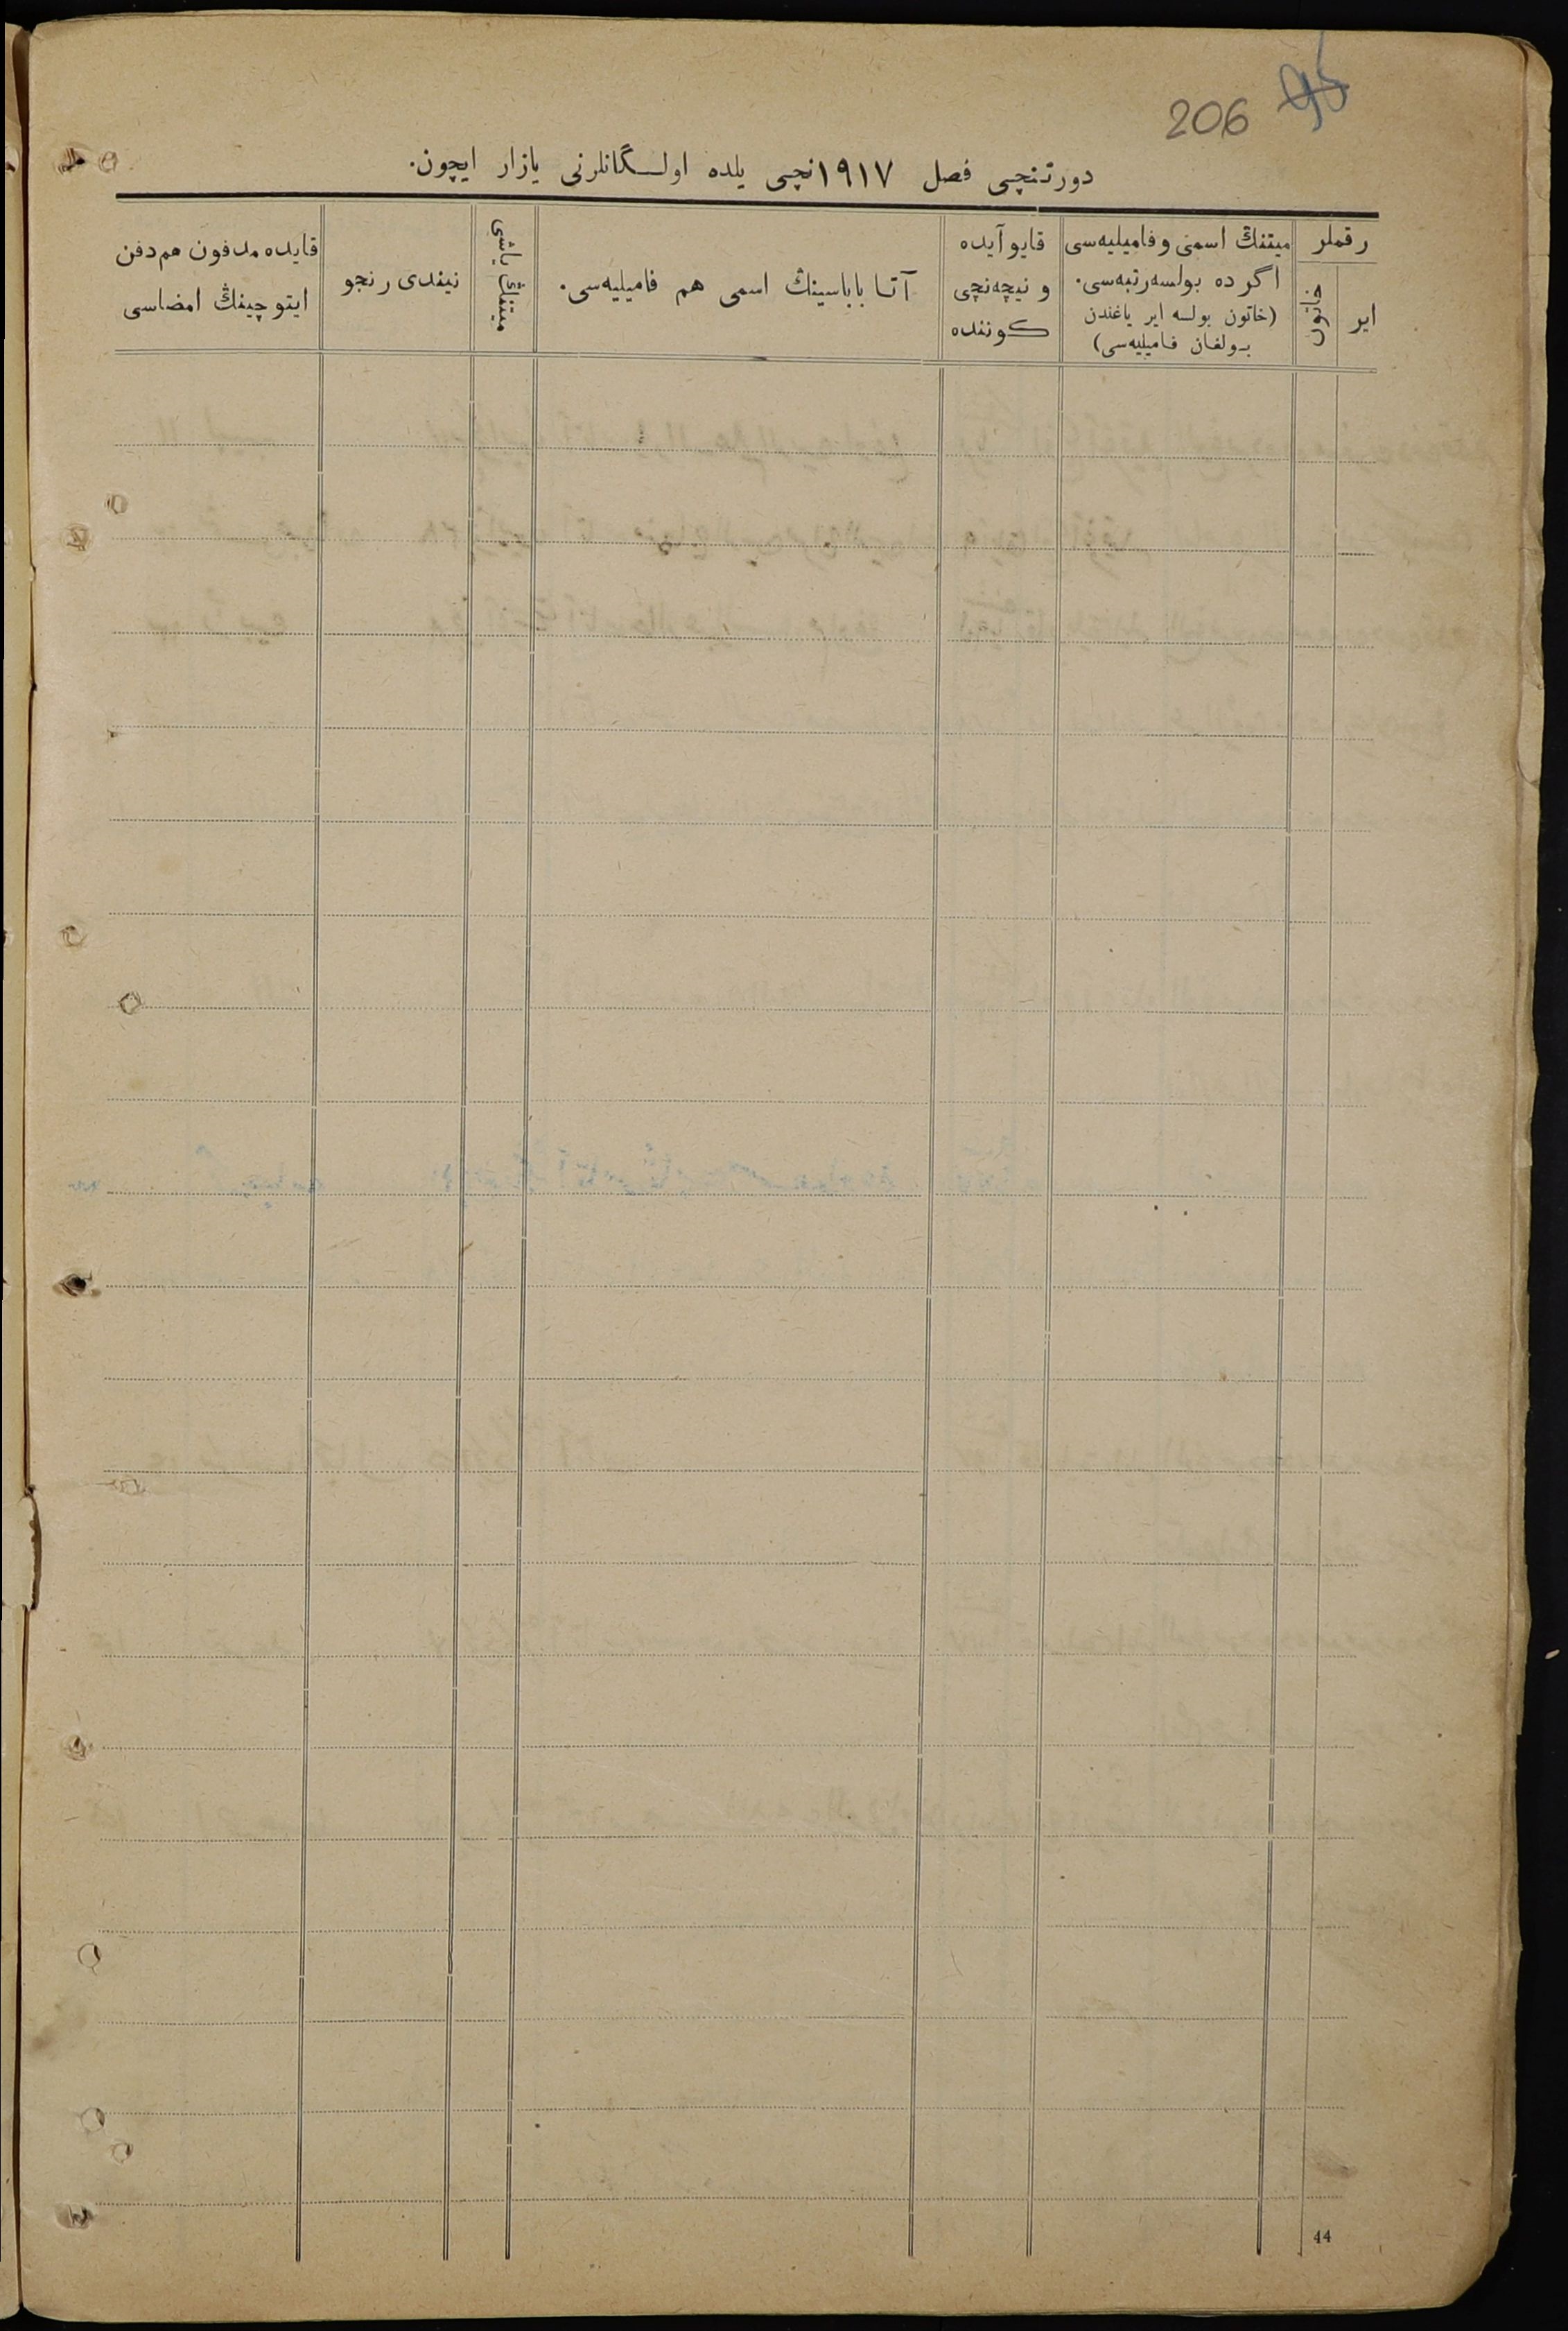 206 95
دورتنچی فصل ۱۹۱۷نچی یلده اولـگانلرنی یازار ایچون.
رقملر
ایر
خاتون
میتنڭ اسمی و فامیلیه‌سی
اگر ده بولسه رتبه‌سی.
(خاتون بولسه ایر یاغندن
بـولغان فامیلیه‌سی)
قایو آیده
و نیچه‌نچی
کوننده
آتـا باباسینڭ اسمی هم فامیلیه‌سی.
میتنڭ یاشی
نیندی رنجو
قایده مدفون هم دفن
ایتوچینڭ امضاسی
44